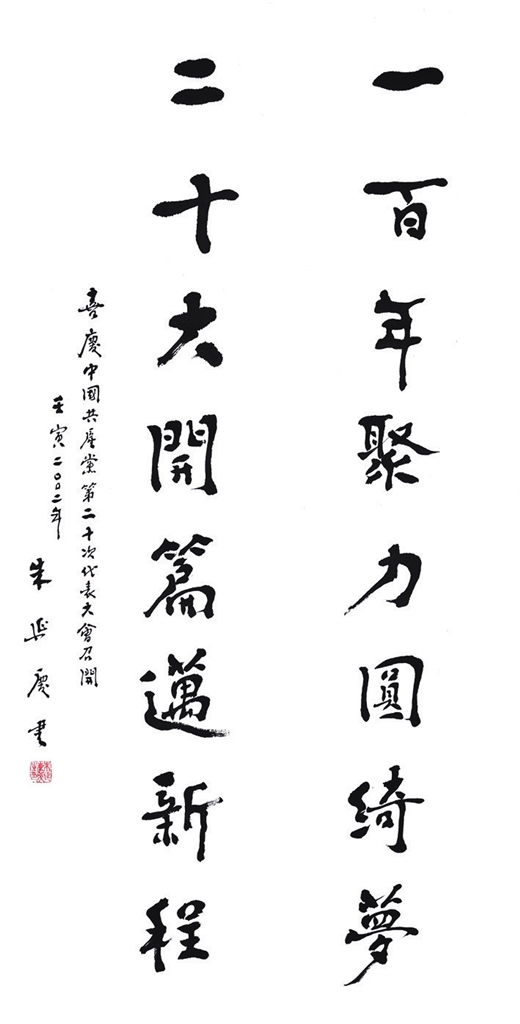 一百年聚力圓綺夢
二十大開篇邁新程
喜慶中國共產黨第二十次代表大會召開
壬寅二〇〇二年 朱延慶書